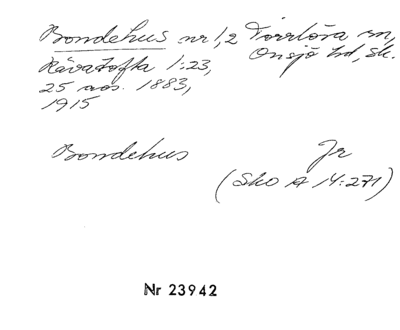 Bondehus nr 1,2 Torrlösa sn,
Råvatofta 1:23, Onsjö hd, Sk.
25 nov. 1883,
1915
Bondehus Jr
(Sko A 14:271)
Nr 23942